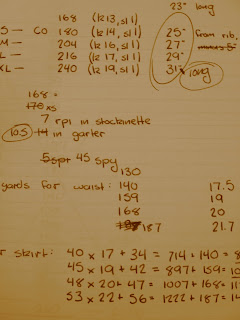 23" long
168 (k13, sl1)
S — CO 180 (k14, sl1) 25" from rib,
M — 204 (k16, sl1) 27"
L — 216 (k17, sl1) 29"
XL — 240 (k19, sl1) 31" long
168 =
170 xs
7 rpi in stockinette
10.5 in garter
5spr 45 spy
130
yards for waist: 140 17.5
159 19
168 20
187 21.7
r skirt: 40 × 17 + 34 = 714 + 140 = 8
45 × 19 + 42 = 897 + 159 = 10
48 × 20 + 47 = 1007 + 168 = 11
53 × 22 + 56 = 1222 + 187 = 14